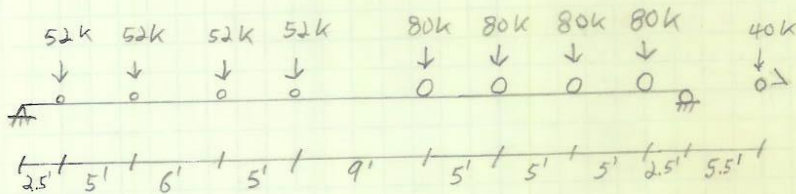 52k 52k 52k 52k 80k 80k 80k 80k 40k
2.5' 5' 6' 5' 9' 5' 5' 5' 2.5' 5.5'